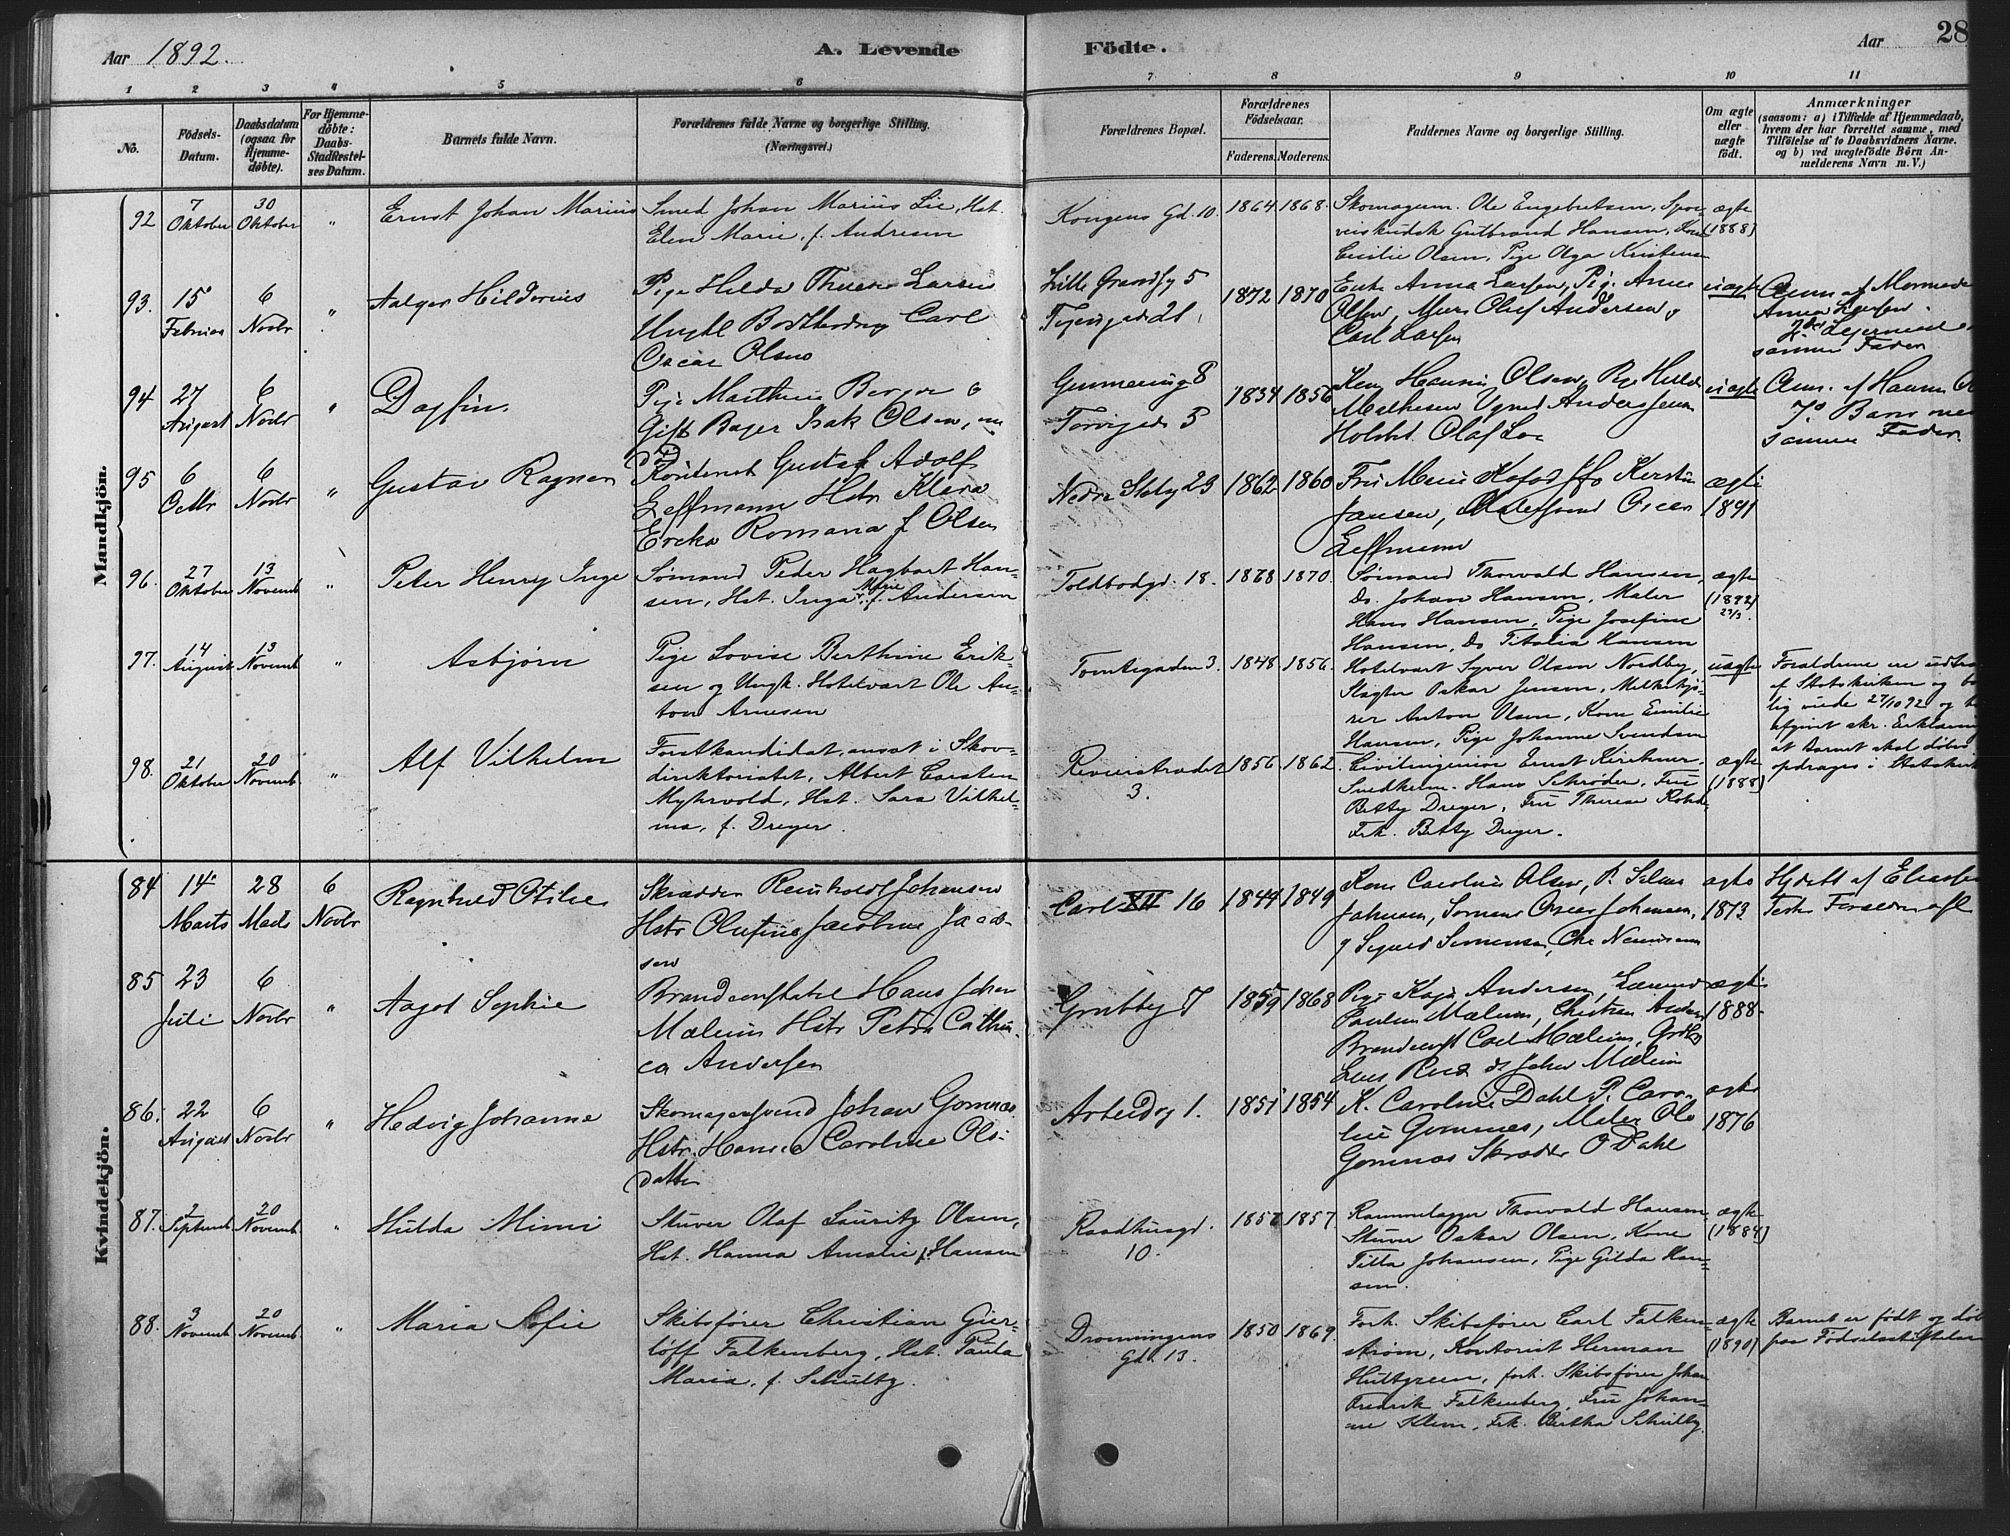 Aar 1892.
A. Levende Födte.
Aar 28
1 2 3 4 5 6 7 8 9 10 11
No.
Födsels-Datum.
Daabsdatum (ogsaa for Hjemme-døbte).
For Hjemme-döbte: Daabs-Stadfæstel-ses Datum.
Barnets fulde Navn.
Forældrenes fulde Navne og borgerlige Stilling.
(Næringsvei.)
Forældrenes Bopæl.
Forældrenes Födselsaar.
Faderens. Moderens.
Faddernes Navne og borgerlige Stilling.
Om ægte eller uægte födt.
Anmærkninger
(saasom: a) i Tilfælde af Hjemmedaab, hvem der har forrettet samme, med Tilföielse af to Daabsvidners Navne. og b) ved uægtefödte Börn An-melderens Navn m. V.)
Mandkjön.
92 7 Oktober 30 Oktober " Ernst Johan Marius
Smed Johan Marius Lie, Hst.
Elen Marie, f. Andresen
Kongens Gd. 10. 1864 1868.
Skomagerm. Ole Engebretsen, Spor-
veiskudsk Gutbrand Hansen, Kone
Emilie Olsen, Pige Olga Kristensen
ægte (1888)
93. 15 Februar 6 Novbr " Aalger Hilderius
Pige Hilda Larsen
Ungkl Carl
Oscar Olsen
5
21
1872 1870
Enke Anna Larsen, Pige Anne
Olsen, Olaf Andersen,
Carl Larsen
uægte
Anm. af Mormode
Anna Larsen.
2det Leiermaal
samme Fader
94 27 August 6 Novbr " Dagfin.
Pige Marthine Berger
Gift Bager Isak Olsen,
8
Torvgd 3
1834 1856
Olsen, Pige Hulda
Mathesen Andersen
Olaf Lie
uægte
Anm. af Hanna
7de Barn med
samme Fader.
95 6 Octbr 6 Novbr " Gustav Ragnar
Gustaf Adolf
Leffmann Hstr Klara
Ericka Romana f Olsen
Nedre Slotsg 23 1862 1860
Fru Marie Hofod Kerstin
Jansen, Oscar
Leffmann
ægte 1891
96. 27 Oktober 13 Novemb " Peter Henry Inge
Sømand Peder Hagbart Han-
sen, Hst. Inga Marie f. Andersen
Toldbodgd. 18. 1868 1870.
Sømand Thorvald Hansen,
Ds. Johan Hansen, Maler
Hans Hansen, Pige Josefine
Hansen, Ds Titalia Hansen
ægte (1892) 23/3.
97. 14 August 13 Novemb " Asbjørn
Pige Lovise Berthine Erik-
sen og Ungk. Hotelvært Ole An-
ton Arnesen
Tomtegaden 3. 1848 1856.
Hotelvært Syver Olsen Nordby,
Slagter Oskar Jensen, Melkekjø-
rer Anton Olsen, Kone Emilie
Hansen, Pige Johanne Svendsen
uægte
Forældrene ere udtra
af Statskirken og bo
lig viede 27/10 92 og
afgivet skr. Erklæring
at Barnet skal døbes
opdrages i Statskirk
98. 21 Oktober 20 Novemb " Alf Vilhelm
Forstkandidat, ansat i Skov-
direktoratet, Albert Carsten
Myhrvold, Hst. Sara Vilhel-
ma, f. Dreyer.
Revierstrædet 3. 1856 1862
Civilingeniør Ernst Kirchner,
Snedkerm. Hans Schrøder, Fru
Betty Dreyer, Fru Therese
Frk. Betty Dreyer.
ægte (1888)
Kvindekjön.
84 14 Marts 28 Marts 6 Novbr Ragnhild Otilie
Skrædder Reinholdt Johansen
Hstr Olufine Jacobine Jacob-
sen
Carl XII 16 1844 1849
Kone Caroline Olsen, P. Selma
Johansen, Sømand Oscar Johansen,
Sigurd Simensen, Chr
ægte 1873
Hjdøbt af
85 23 Juli 6 Novbr " Aagot Sophie
Brandconstabel Hans Johan
Mælum Hstr Petra Cathin-
ca Andersen
Grubbeg 7 1859 1868
Pige Kaja Andersen,
Pauline Mælum, Christian Andersen
Brandconst Carl Mælum,
Lars Rud ds Johan Mælum
ægte 1888.
86. 22 August 6 Novbr " Hedvig Johanne
Skomagersvend Johan Gomnæs
Hstr. Hanna Caroline Ols-
datter
Arbeidrg 1. 1851 1854
K. Caroline Dahl P. Caro-
line Gomnæs, Maler Ole
Gomnæs Skræder O Dahl
ægte 1876
87. 2 Septemb 20 Novemb " Hulda Mimi
Stuver Olaf Lauritz Olsen,
Hst. Hanna Amalie f. Hansen
Raadhusgd. 10. 1857.
Rammelægger Thorvald Hansen,
Stuver Oskar Olsen, Kone
Titta Johansen, Pige Gilda Han-
sen.
ægte (1884)
88. 3 Novemb 20 Novemb " Maria Sofie
Skibsfører Christian Gier-
löff Falkenberg, Hst. Paula
Maria, f. Schultz.
Dronningens Gd. 13. 1850 1869.
Forh. Skibsfører Carl Falken-
strøm, Kontorist Herman
Hultgreen, forh. Skibsfører Johan
Fredrik Falkenberg, Fru Johan-
ne Klem, Frk. Bertha Schultz
ægte (1890)
Barnet er født og døb
paa Fødselsstiftelsen